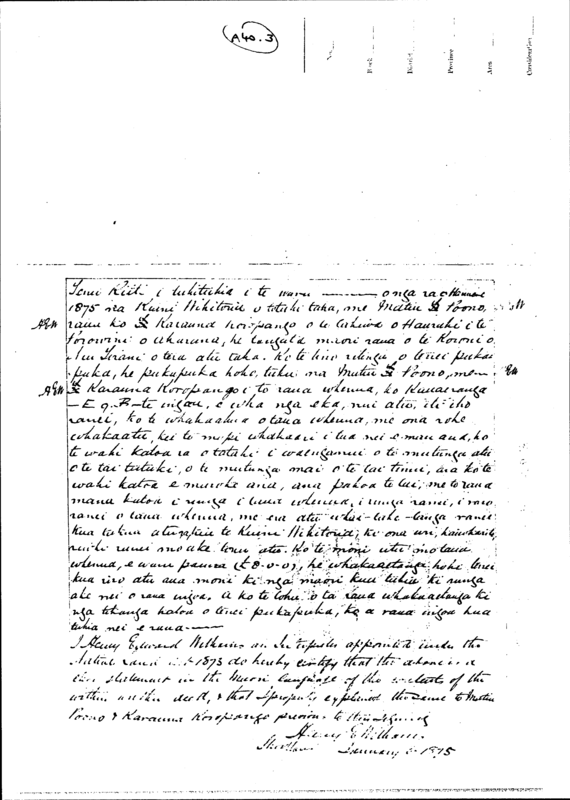 A40.3
No.
Block
District
Province
Area
Consideration
Tenei Kiiti i tuhituhia i te waru o nga ra o Hanuere
1875 na Kuini Wikitoria o tetahi taha, me Matiu Poono,
raua ko Karauna Koropango o te takiwa o Hauraki i te
Porowini o Akarana, he tangata maori raua o te Koroni o
Niu Tirani o tera atu taha. Ko te tino ritenga o tenei puka-
puka, he pukapuka hoko, tuku na Matiu Poono, me
Karauna Koropango i to raua whenua, ko Kauaeranga
E q. B te ingoa, e wha nga eka, nui atu, iti iho
ranei, ko te whakaahua o taua whenua, me ona rohe
whakaatu, kei te mapi whakaari i tua nei e mau ana, ko
te wahi katoa ra o tatahi i waenganui o te mutunga atu
o te tai tatuki, o te mutunga mai o te tai timu, ara ko te
wahi katoa e maroke ana, ana pahoa te tai, me to raua
mana katoa i runga i taua whenua, i runga ranei, i raro
ranei o taua whenua, me era atu whai-take-tanga ranei
kua tukua atu ki a te Kuini Wikitoria, ki ona uri, kaiwhakarite,
ranei mo ake tonu atu. Ko te moni utu mo taua
whenua, e waru pauna (£8-0-0), he whakaaetanga hoki tenei
kua riro atu ana moni ki nga maori kua tuhia ki runga
ake nei o raua ingoa. A ko te tohu o ta raua whakaaetanga ki
nga tikanga katoa o tenei pukapuka, ko a raua ingoa kua
tuhia nei e raua
I Henry Edward Williams an Interpreter appointed under the
Native Lands Act 1873 do hereby certify that the above is a
statement in the Maori language of the contents of the
within written deed, & that I properly explained the same to Matiu
Poono & Karauna Koropango previous to their signing
Henry E Williams
Shortland January 8 1875